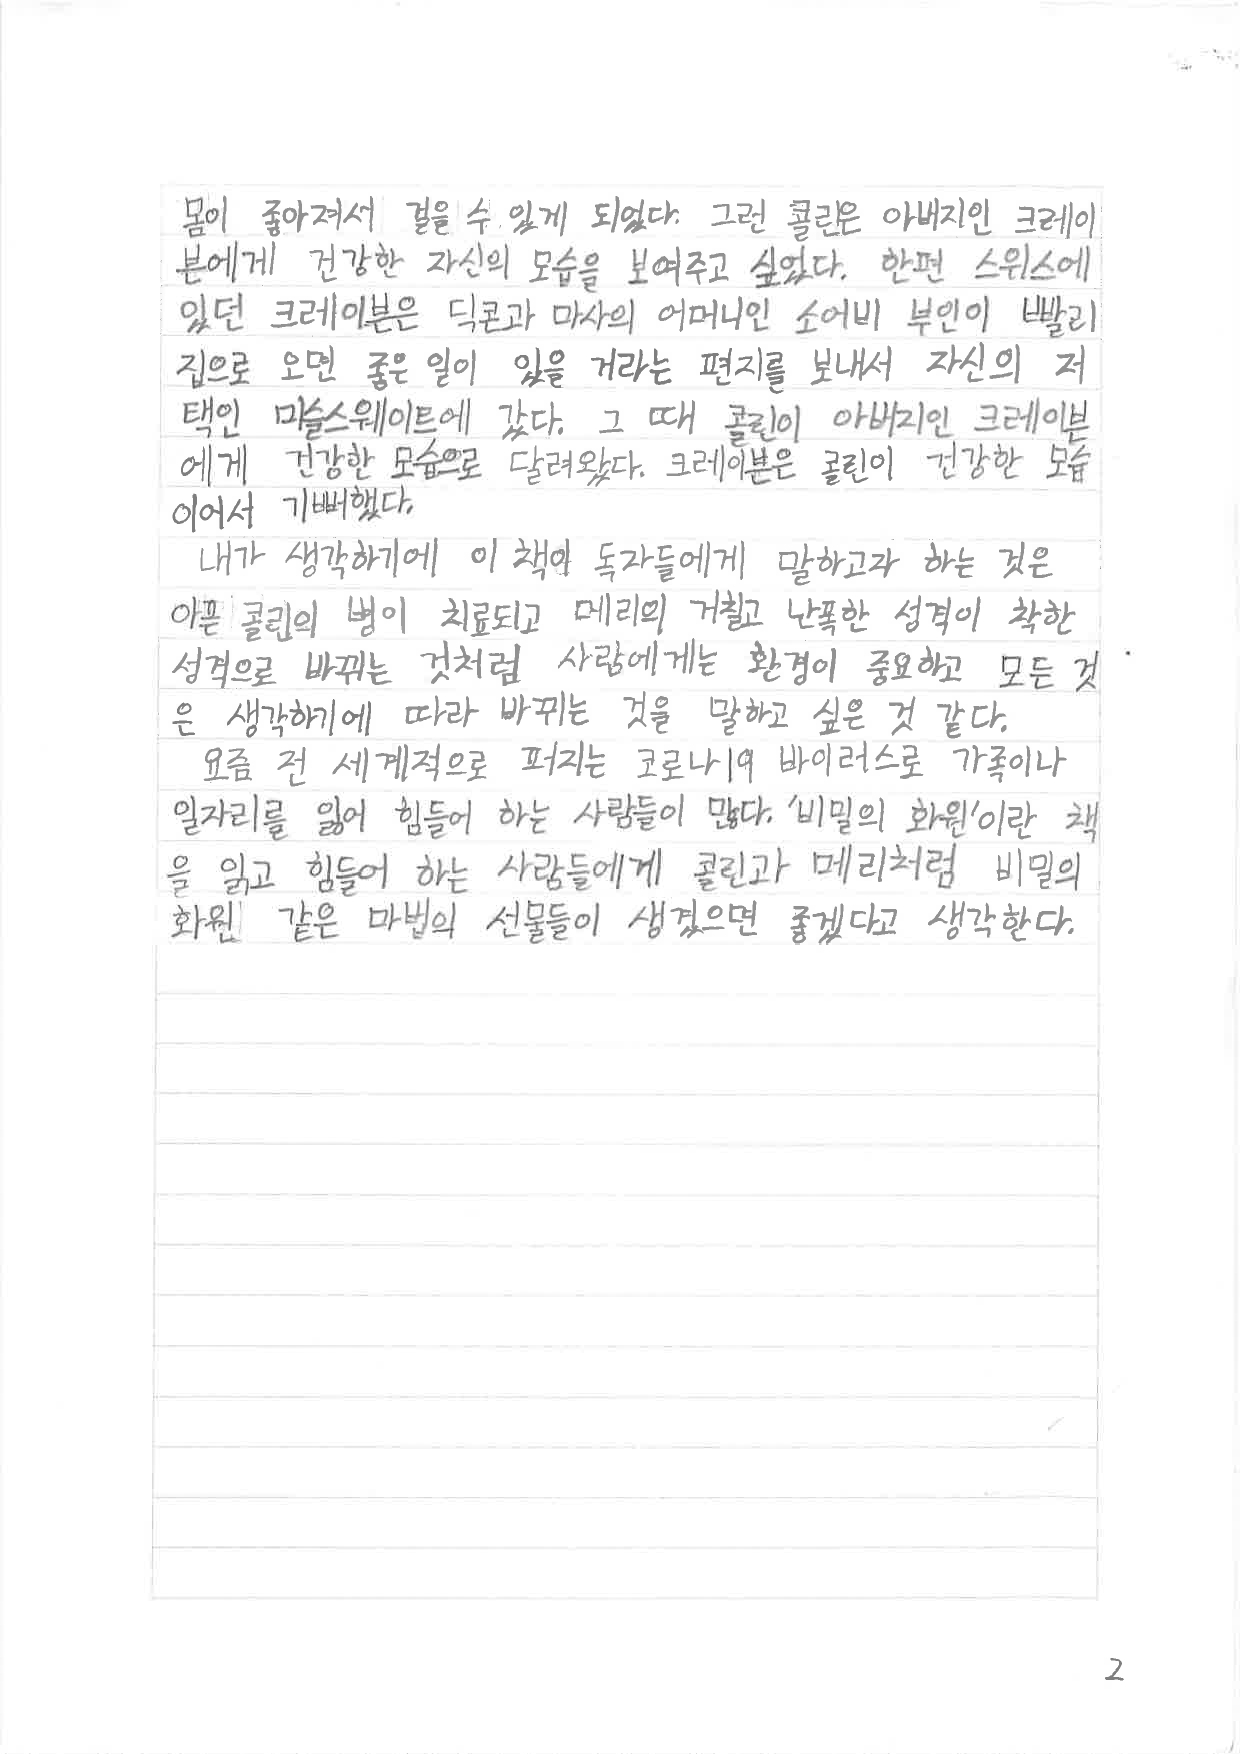 몸이 좋아져서 걸을 수 있게 되었다. 그런 콜린은 아버지인 크레이
븐에게 건강한 자신의 모습을 보여주고 싶었다. 한편 스위스에
있던 크레이븐은 딕콘과 마사의 어머니인 소어비 부인이 빨리
집으로 오면 좋은 일이 있을 거라는 편지를 보내서 자신의 저
택인 미슬스웨이트에 갔다. 그 때 콜린이 아버지인 크레이븐
에게 건강한 모습으로 달려왔다. 크레이븐은 콜린이 건강한 모습
이어서 기뻐했다.
내가 생각하기에 이 책이 독자들에게 말하고자 하는 것은
아픈 콜린의 병이 치료되고 메리의 거칠고 난폭한 성격이 착한
성격으로 바뀌는 것처럼 사람에게는 환경이 중요하고 모든 것
은 생각하기에 따라 바뀌는 것을 말하고 싶은 것 같다.
요즘 전 세계적으로 퍼지는 코로나19 바이러스로 가족이나
일자리를 잃어 힘들어 하는 사람들이 많다. '비밀의 화원'이란 책
을 읽고 힘들어 하는 사람들에게 콜린과 메리처럼 비밀의
화원 같은 마법의 선물들이 생겼으면 좋겠다고 생각한다.
2